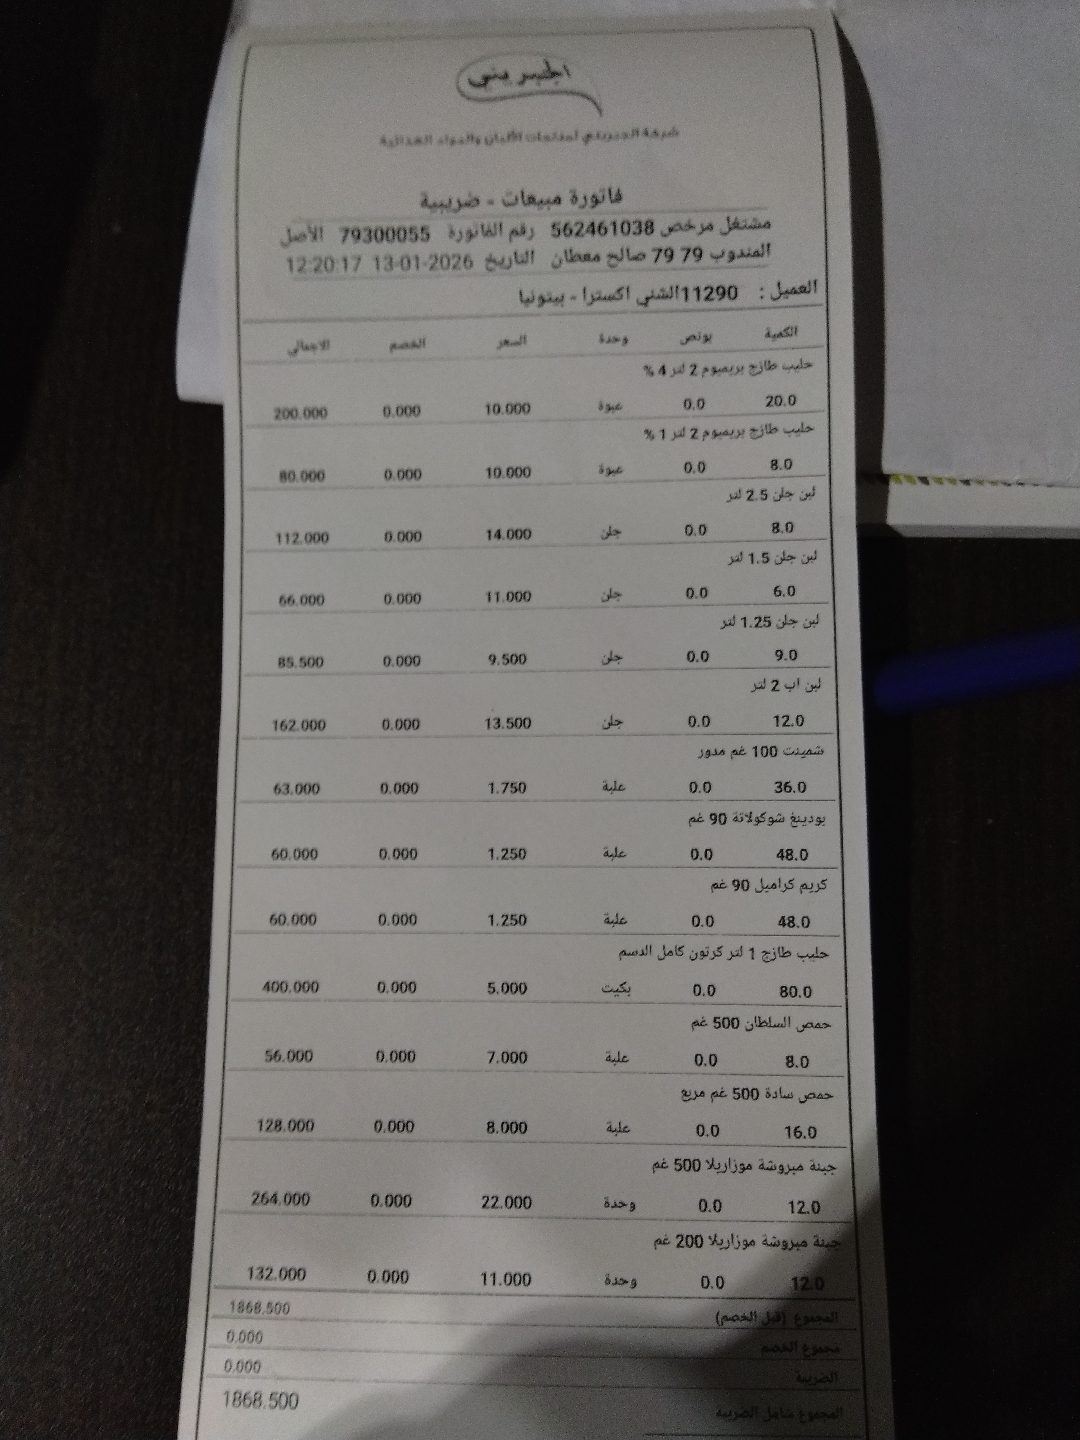 الجبريني
شركة الجبريني لمنتجات الألبان والمواد الغذائية
فاتورة مبيعات - ضريبية
مشتغل مرخص 562461038 رقم الفاتورة 79300055 الأصل
المندوب 79 79 صالح معطان التاريخ 13-01-2026 12:20:17
العميل : 11290الشني اكسترا - بيتونيا
الكمية بونص وحدة السعر الخصم الاجمالي
حليب طازج بريميوم 2 لتر 4 %
20.0 0.0 عبوة 10.000 0.000 200.000
حليب طازج بريميوم 2 لتر 1 %
8.0 0.0 عبوة 10.000 0.000 80.000
لبن جلن 2.5 لتر
8.0 0.0 جلن 14.000 0.000 112.000
لبن جلن 1.5 لتر
6.0 0.0 جلن 11.000 0.000 66.000
لبن جلن 1.25 لتر
9.0 0.0 جلن 9.500 0.000 85.500
لبن اب 2 لتر
12.0 0.0 جلن 13.500 0.000 162.000
شمينت 100 غم مدور
36.0 0.0 علبة 1.750 0.000 63.000
بودينغ شوكولاتة 90 غم
48.0 0.0 علبة 1.250 0.000 60.000
كريم كراميل 90 غم
48.0 0.0 علبة 1.250 0.000 60.000
حليب طازج 1 لتر كرتون كامل الدسم
80.0 0.0 بكيت 5.000 0.000 400.000
حمص السلطان 500 غم
8.0 0.0 علبة 7.000 0.000 56.000
حمص سادة 500 غم مربع
16.0 0.0 علبة 8.000 0.000 128.000
جبنة مبروشة موزاريلا 500 غم
12.0 0.0 وحدة 22.000 0.000 264.000
جبنة مبروشة موزاريلا 200 غم
12.0 0.0 وحدة 11.000 0.000 132.000
المجموع (قبل الخصم) 1868.500
مجموع الخصم 0.000
الضريبة 0.000
المجموع شامل الضريبه 1868.500